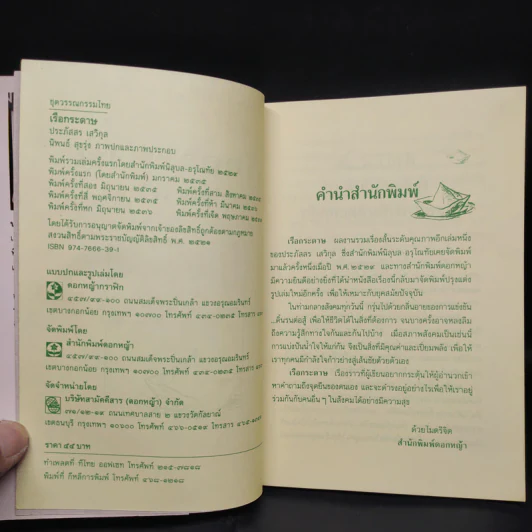 ชุดวรรณกรรมไทย
เรือกระดาษ
ประภัสสร เสวิกุล
นิพนธ์ สุธรุ่ง ภาพปกและภาพประกอบ
พิมพ์รวมเล่มครั้งแรกโดยสำนักพิมพ์นิลุบล-อรุโณทัย
พิมพ์ครั้งแรก (โดยสำนักพิมพ์) มกราคม ๒๕๓๕
พิมพ์ครั้งที่สอง มิถุนายน ๒๕๓๕ พิมพ์ครั้งที่สาม สิงหาคม
พิมพ์ครั้งที่สี่ พฤศจิกายน ๒๕๓๕ พิมพ์ครั้งที่ห้า มีนาคม
พิมพ์ครั้งที่หก มิถุนายน ๒๕๓๖ พิมพ์ครั้งที่เจ็ด พฤษภาคม
โดยได้รับการอนุญาตจัดพิมพ์จากเจ้าของลิขสิทธิ์ถูกต้องตามกฎหมาย
สงวนลิขสิทธิ์ตามพระราชบัญญัติลิขสิทธิ์ พ.ศ. ๒๕๒๑
ISBN 974-7666-39-1
แบบปกและรูปเล่มโดย
ดอกหญ้ากราฟิก
๔๕๗/๙๙-๑๐๐ ถนนสมเด็จพระปิ่นเกล้า แขวงอรุณอมรินทร์
เขตบางกอกน้อย กรุงเทพฯ ๑๐๗๐๐ โทรศัพท์ ๔๓๔-๐๒๓๕ โทรสาร
จัดพิมพ์โดย
สำนักพิมพ์ดอกหญ้า
๔๕๗/๙๙-๑๐๐ ถนนสมเด็จพระปิ่นเกล้า แขวงอรุณอมรินทร์
เขตบางกอกน้อย กรุงเทพฯ ๑๐๗๐๐ โทรศัพท์ ๔๓๔-๐๒๓๕ โทรสาร
จัดจำหน่ายโดย
บริษัทสามัคคีสาร (ดอกหญ้า) จำกัด
๓๑/๑๒-๑๓ ถนนเทศบาลสาย ๒ แขวงวัดกัลยาณ์
เขตธนบุรี กรุงเทพฯ ๑๐๖๐๐ โทรศัพท์ ๔๖๖-๐๕๑๙ โทรสาร
ราคา ๔๕ บาท
ทำเพลตที่ ทีไทย ออฟเซท โทรศัพท์ ๒๑๕-๗๘๑๘
พิมพ์ที่ กีพลีการพิมพ์ โทรศัพท์ ๔๖๘-๑๒๑๘
คำนำสำนักพิมพ์
เรือกระดาษ ผลงานรวมเรื่องสั้นระดับคุณภาพอีกเล่มหนึ่ง
ของประภัสสร เสวิกุล ซึ่งสำนักพิมพ์นิลุบล อรุโณทัยเคยจัดพิมพ์
มาแล้วครั้งหนึ่งเมื่อปี พ.ศ. และทางสำนักพิมพ์ดอกหญ้า
มีความยินดีอย่างยิ่งที่ได้นำหนังสือเรื่องนี้กลับมาจัดพิมพ์ปรุงแต่ง
รูปเล่มใหม่อีกครั้ง เพื่อให้เหมาะกับยุคสมัยปัจจุบัน
ในท่ามกลางสังคมทุกวันนี้ กรุ่นไปด้วยกลิ่นอายของการแข่งขัน
ดิ้นรนต่อสู้ เพื่อให้ชีวิตได้ในสิ่งที่ต้องการ จนบางครั้งอาจหลงลืม
ถึงความรู้สึกทางใจกันและกันไปบ้าง เมื่อสภาพสังคมเป็นเช่นนี้
การแบ่งปันน้ำใจให้แก่กัน จึงเป็นสิ่งที่มีคุณค่าและเปี่ยมพลัง เพื่อให้
เราทุกคนมีกำลังใจก้าวอย่างสู่เส้นชัยด้วยตัวเอง
เรือกระดาษ เรื่องราวที่ผู้เขียนอยากกระตุ้นให้ผู้อ่านวกเข้า
หาคำถามถึงจุดยืนของตนเอง และจะดำรงอยู่อย่างไรเพื่อให้เราอยู่
ร่วมกันกับคนอื่นๆ ในสังคมได้อย่างมีความสุข
ด้วยไมตรีจิต
สำนักพิมพ์ดอกหญ้า